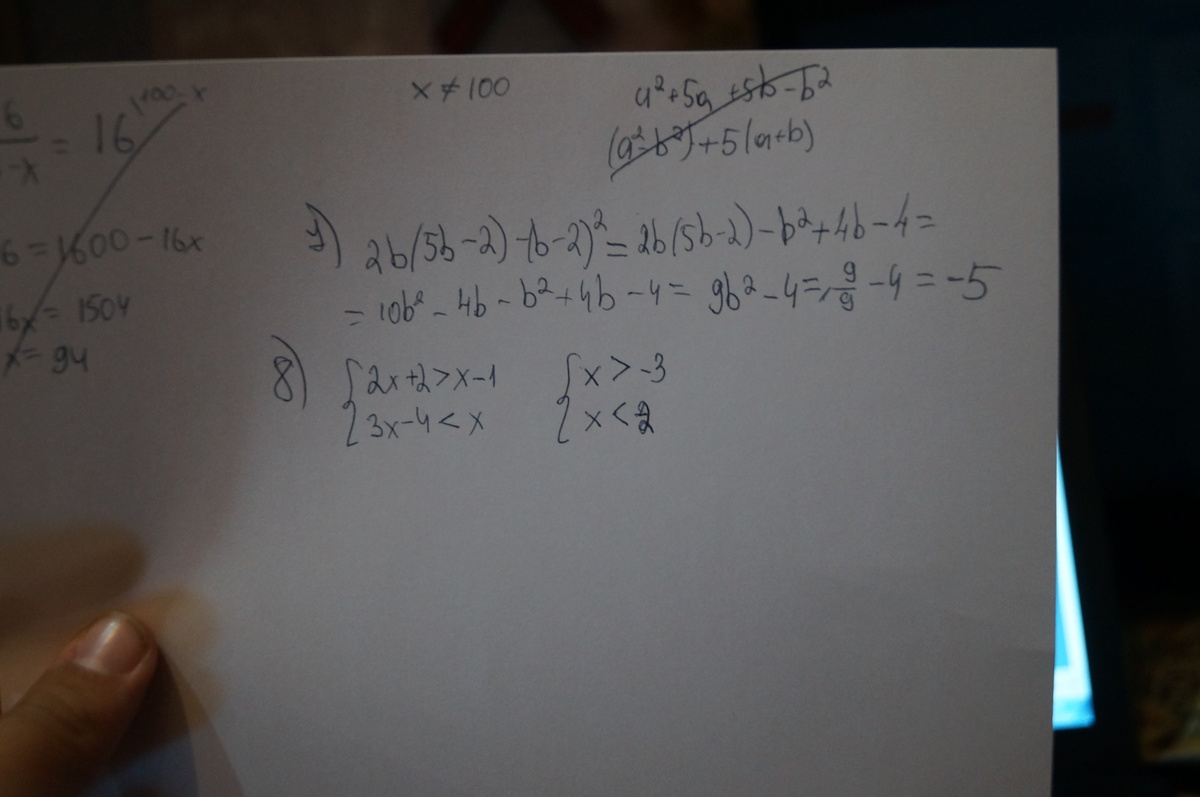 6/-x = 16 \100-x
6 = 1600 - 16x
16x = 1504
x = 94
x ≠ 100
a² + 5a + 5b - b²
(a² - b²) + 5(a+b)
7) 2b(5b-2) - (b-2)² = 2b(5b-2) - b² + 4b - 4 =
= 10b² - 4b - b² + 4b - 4 = 9b² - 4 = 9/9 - 4 = -5
8) { 2x+2 > x-1 { x > -3
{ 3x-4 < x { x < 2